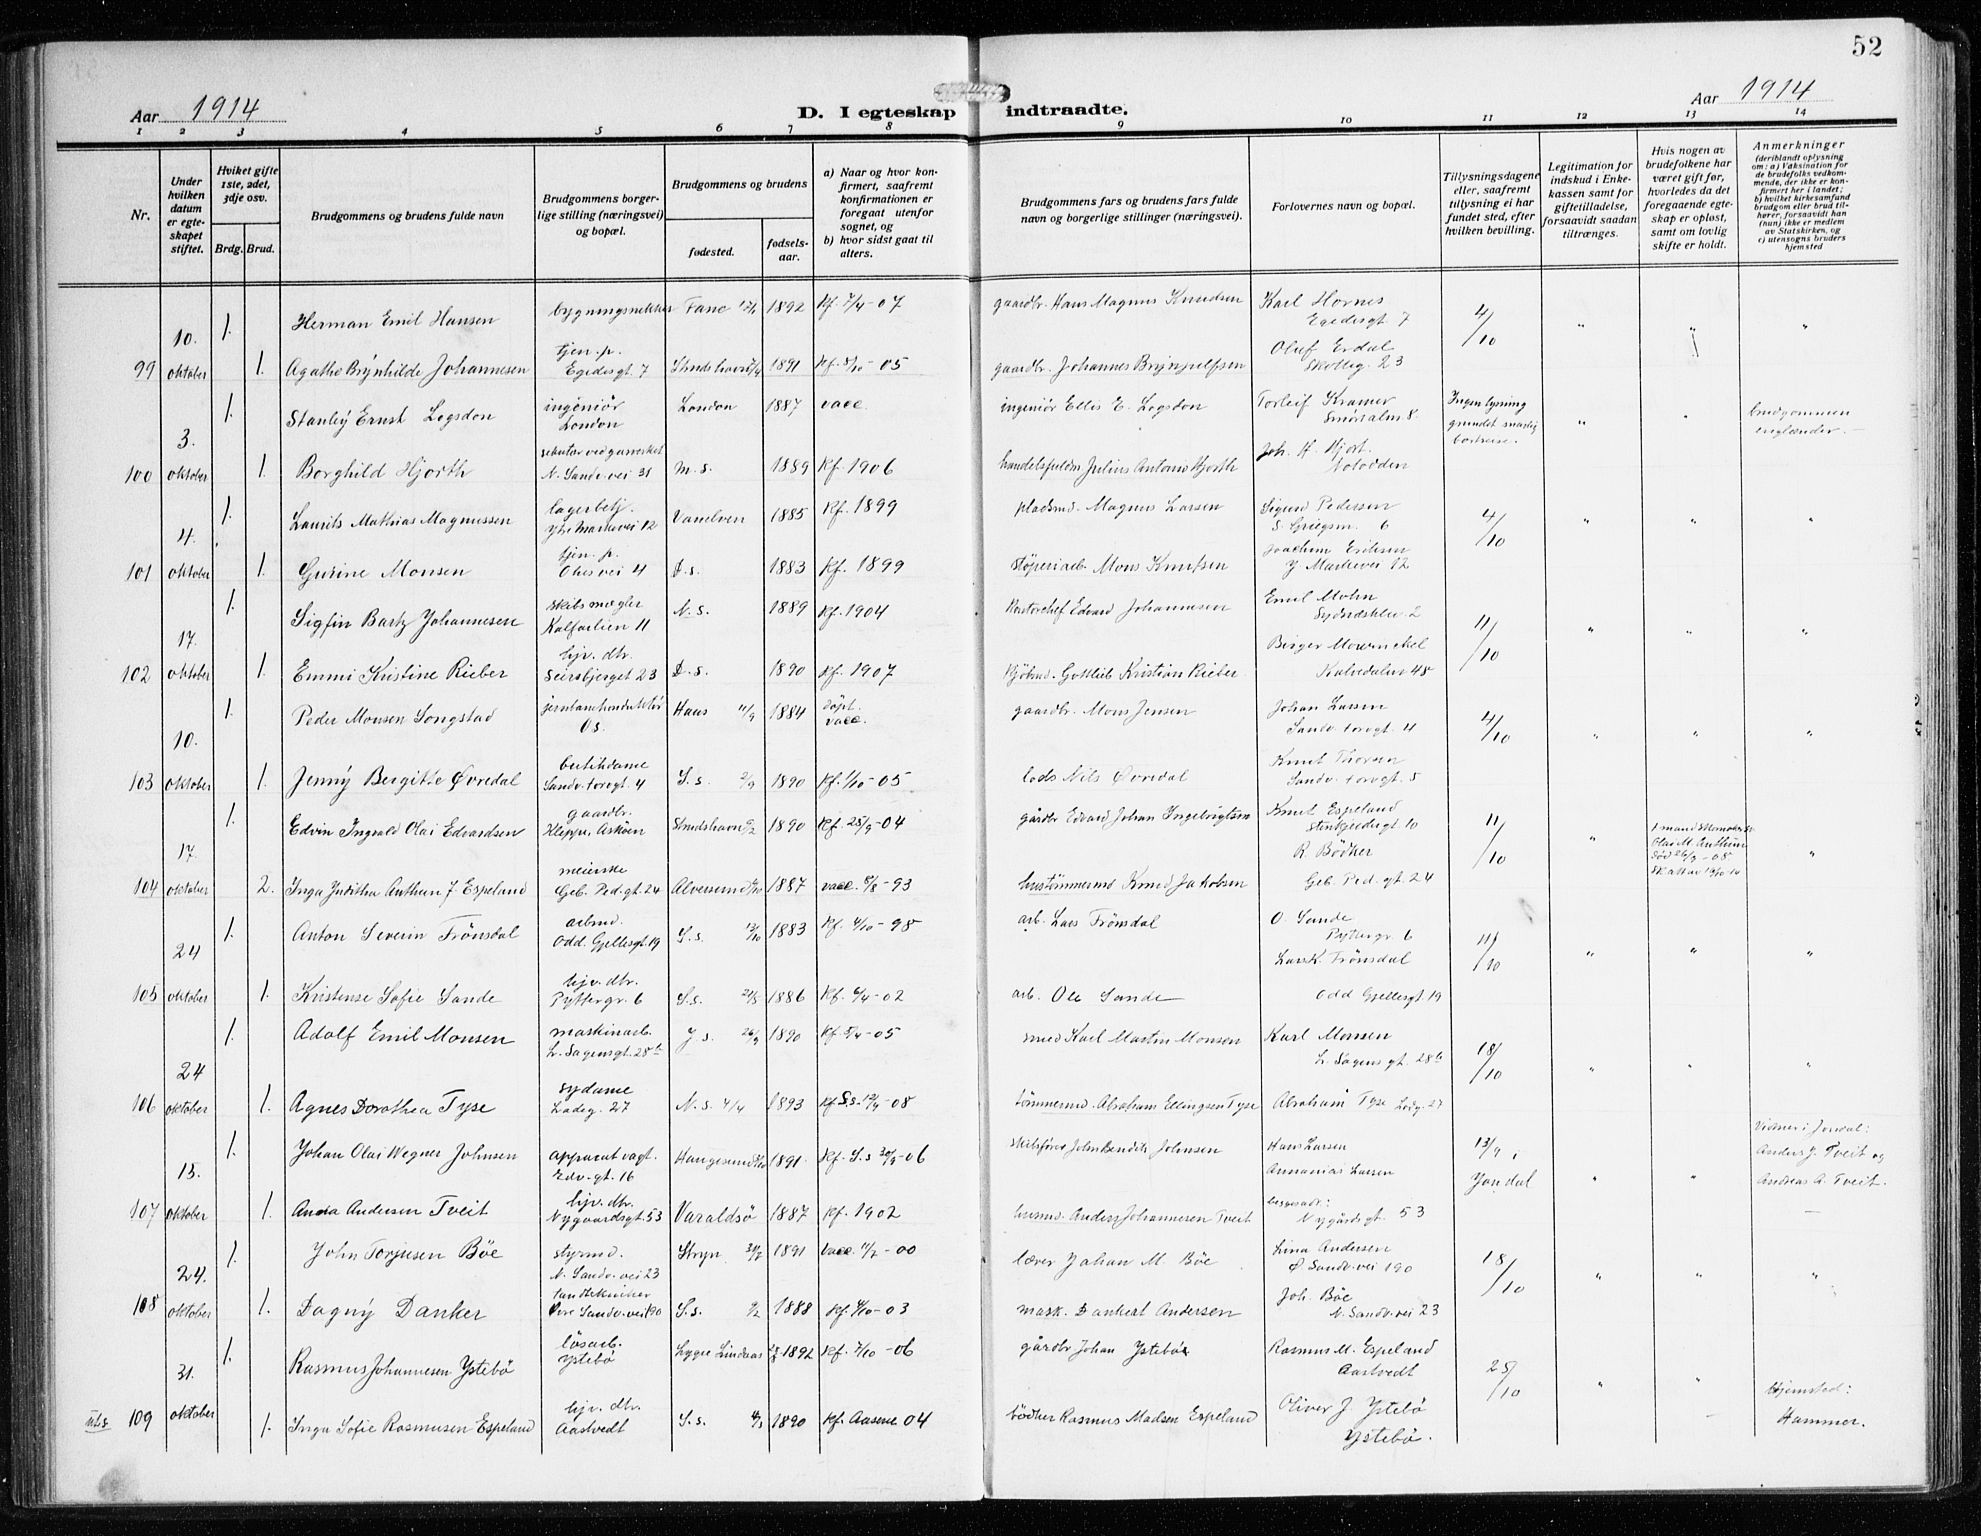 52
Aar 1914
D. I egteskap indtraadte.
Aar 1914
1 2 3 4 5 6 7 8 9 10 11 12 13 14
Nr.
Under hvilken datum er egteskapet stiftet.
Hviket gifte 1ste, 2det, 3dje osv.
Brdg. Brud.
Brudgommens og brudens fulde navn
Brudgommens borgerlige stilling (næringsvei) og bopæl.
Brudgommens og brudens
fødested.
fødsels-aar.
a) Naar og hvor konfirmert, saafremt konfirmationen er foregaat utenfor sognet, og
b) hvor sidst gaat til alters.
Brudgommens fars og brudens fars fulde navn og borgerlige stillinger (næringsvei).
Forlovernes navn og bopæl.
Tillysningsdagene eller, saafremt tillysning ei har fundet sted, efter hvilken bevilling.
Legitimation for indskud i Enkekassen samt for giftetilladelse, forsaavidt saadan tiltrænges.
Hvis nogen av brudefolkene har været gift før, hvorledes da det foregaaende egteskap er opløst, samt om lovlig skifte er holdt.
Anmerkninger
(deriblandt oplysning om: a) Vaksination for de brudefolks vedkommende, der ikke er konfirmert her i landet; b) hvilket kirkesamfund brudgom eller brud tilhører, forsaavidt han (hun) ikke er medlem av Statskirken, og c) utensogns bruders hjemsted
99 10. oktober
1. Herman Emil Hansen bygningssnekker Fane 1892 Kf. 7/4-07 gaardbr. Hans Magnus Knudsen Karl Hornes Egedesgt 7 4/10 " " "
1. Agathe Brynhilde Johannesen tjen. p. Egedesgt. 7 1891 Kf. 8/10-05 gaardbr. Johannes Brynjulfsen Oluf Erdal Skotteg. 23
100 3. oktober
1. Stanley Ernst Logsdon ingeniør London London 1887 vacc. ingeniør Ellis E. Logsdon Torleif Kramer Smørsalm 8. Ingen lysning grundet snarlig bortreise. " " brudgommen englænder.
1. Borghild Hjorth N. Sandv. vei 31 M.s. 1889 Kf 1906 Julius Antonio Hjorth Joh. H. Hjort. Notodden
101 4. oktober
1. Laurits Mathias Magnussen lagerbetj. Ytr. Markevei 12 Vanelven 1885 Kf. 1899 pladsmd. Magnus Larsen Sigurd Pedersen 6 4/10 " " "
1. Gurine Monsen tjen. p. 4 D.s. 1883 Kf. 1899 støperiarb. Mons Knutsen Joachim Eriksen Y Markevei 12
102 17. oktober
1. Sigfin Bartz Johannesen skibsmægler Kalfarlien 11 N.s. 1889 Kf. 1904 Kontorchef Edvard Johannesen Emil Mohn 2 11/10 " " "
1. Emmi Kristine Rieber hjv. dtr. 23 D.s. 1890 Kf. 1907 Kjöbmd. Gottlieb Kristian Rieber Birger Mowinckel Kalvedalsv 48
103 10. oktober
1. Peder Monsen Songstad Os. Haus 11/9 1884 döpt. vacc. gaardbr. Mons Jensen Johan Larsen Sandv. torvgt. 4 4/10 " " "
1. Jenny Bergitte Øvredal butikdame Sandv. torvgt. 4 S.s. 2/9 1890 Kf. 1/10-05 lods Nils Øvredal Knut Sandv. torvgt. 5
104 17. oktober
1. Edvin Ingvald Olai Edvardsen gaardbr. Kleppe, Asköen 1890 Kf. 25/9-04 gårdbr Edvard Johan Ingebrigtsen Knut Espeland 10 11/10 " Olai M. Anthun död 26/3-08 "
2. Inga Juditha Anthun f. Espeland meierske Geb. Ped. gt. 24 Alversund 1887 vacc. 8/8-93 hustømmermd Knud Jakobsen R. Bødker Geb. Ped. gt. 24
105 24 oktober
1. Anton Severin Frönsdal arbmd. Odd Gjellesgt. 19 S.s. 13/10 1883 Kf. 4/10-98 arb. Lars Frönsdal O. Sande Pyttergr. 6 11/10 " " "
1. Kristense Sofie Sande hjv. dtr. Pyttergr. 6 S.s. 1886 Kf. 6/4-02 arb. Ole Sande Lars K. Frönsdal Odd Gjellesgt 19
106 24 oktober
1. Adolf Emil Monsen maskinarb. L. Sagensgt. 28b J.s. 26/9 1890 Kf 5/4-05 smed Karl Martin Monsen Karl Monsen L. Sagens gt. 28b 18/10 " " "
1. Agnes Dorothea Tyse sydame Ladeg. 27 N.s. 4/4 1893 Kf S.s. 12/4-08 tömmermd. Abraham Ellingsen Tyse Abraham Tyse Ladg. 27
107 15. oktober
1. Johan Olai Wegner Johnsen apparatvagt. Edv. gt. 16 Haugesund 1891 Kf. S.s 30/9-06 skibsförer John Bendik Johnsen Hans Larsen Annanias Larsen 13/9, Jondal " " Vidner i Jondal: Anders J. Tveit og Andreas A. Tveit.
1. Anna Andersen Tveit hjv. dtr. Nygaardsgt. 53 Varaldsö 1887 Kf. 1902 husmd Anders Johannesen Tveit Nygårdsgt. 53
108 24. oktober
1. John Torjusen Böe styrmd. N. Sandv. vei 23 Stryn 1891 Vacc. 11/2-00 lærer Johan M. Böe Lina Andersen Ø. Sandv. vei 190 18/10 " " "
1. Dagny Danker tandtekniker Øvre Sandv. vei 190 S.s. 1888 Kf. 4/10-03 mask. Dankert Andersen Joh. Böe N. Sandv. vei 23
uts. 109 31. oktober
1. Rasmus Johannesen Ystebö lösarb. Ystebö Lygre Lindaas 1892 Kf. 7/10-06 gårdbr Johan Ystebö Rasmus M. Espeland Aastvedt 25/10 " " Hjemsted: Hammer.
1. Inga Sofie Rasmusen Espeland hjv. dtr. Aastvedt S.s. 1890 Kf. Aasene 04 bödker Rasmus Madsen Espeland Oliver J Ystebö Ystebö.